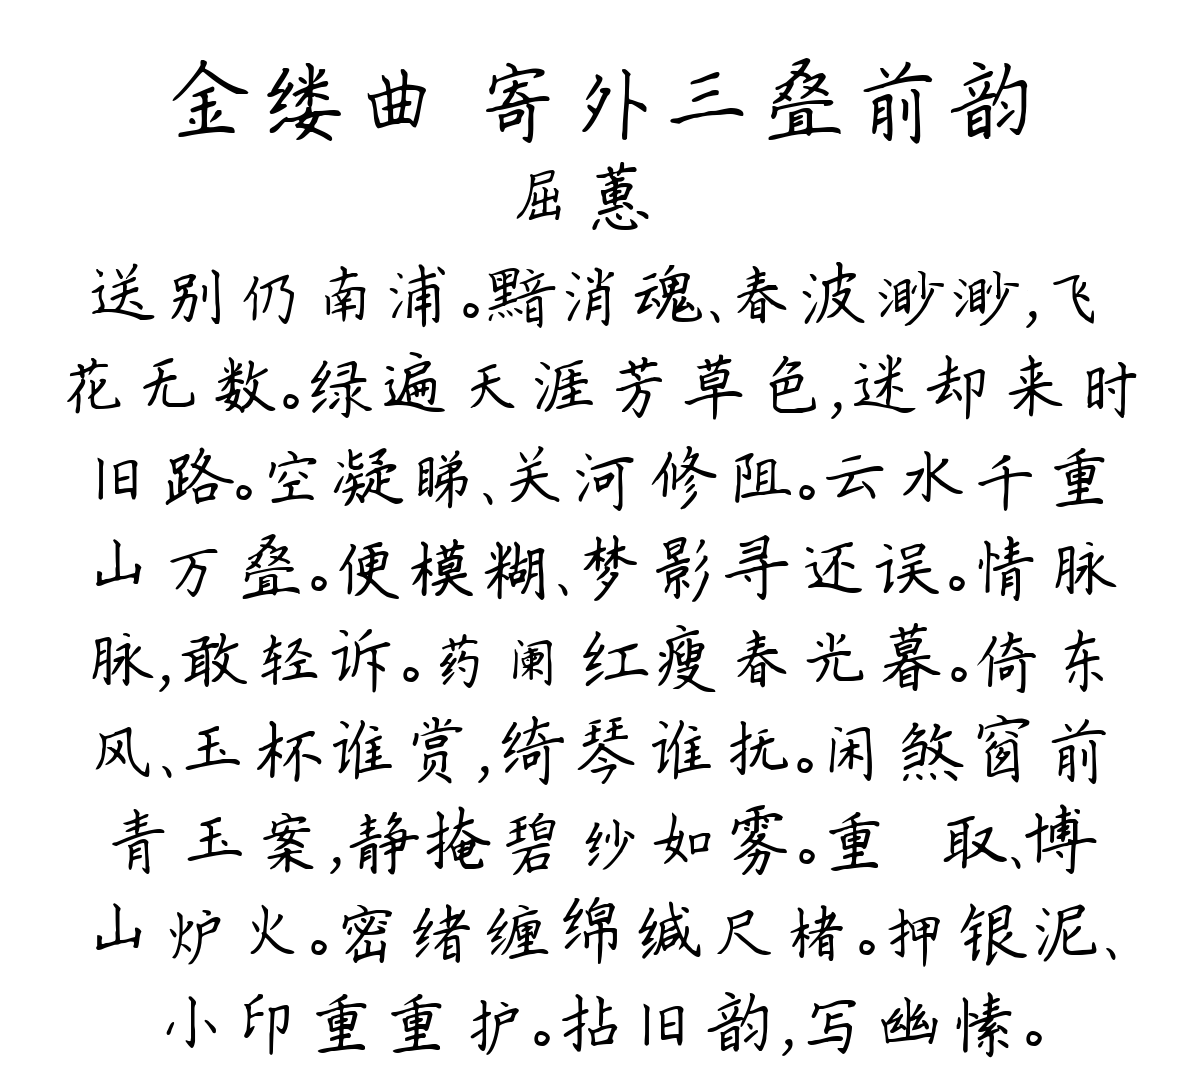 金缕曲 寄外三叠前韵
屈蕙
送别仍南浦。黯消魂、春波渺渺,飞
花无数。绿遍天涯芳草色,迷却来时
旧路。空凝睇、关河修阻。云水千重
山万叠。便模糊、梦影寻还误。情脉
脉,敢轻诉。药阑红瘦春光暮。倚东
风、玉杯谁赏,绮琴谁抚。闲煞窗前
青玉案,静掩碧纱如雾。重 取、博
山炉火。密绪缠绵缄尺楮。押银泥、
小印重重护。拈旧韵,写幽愫。